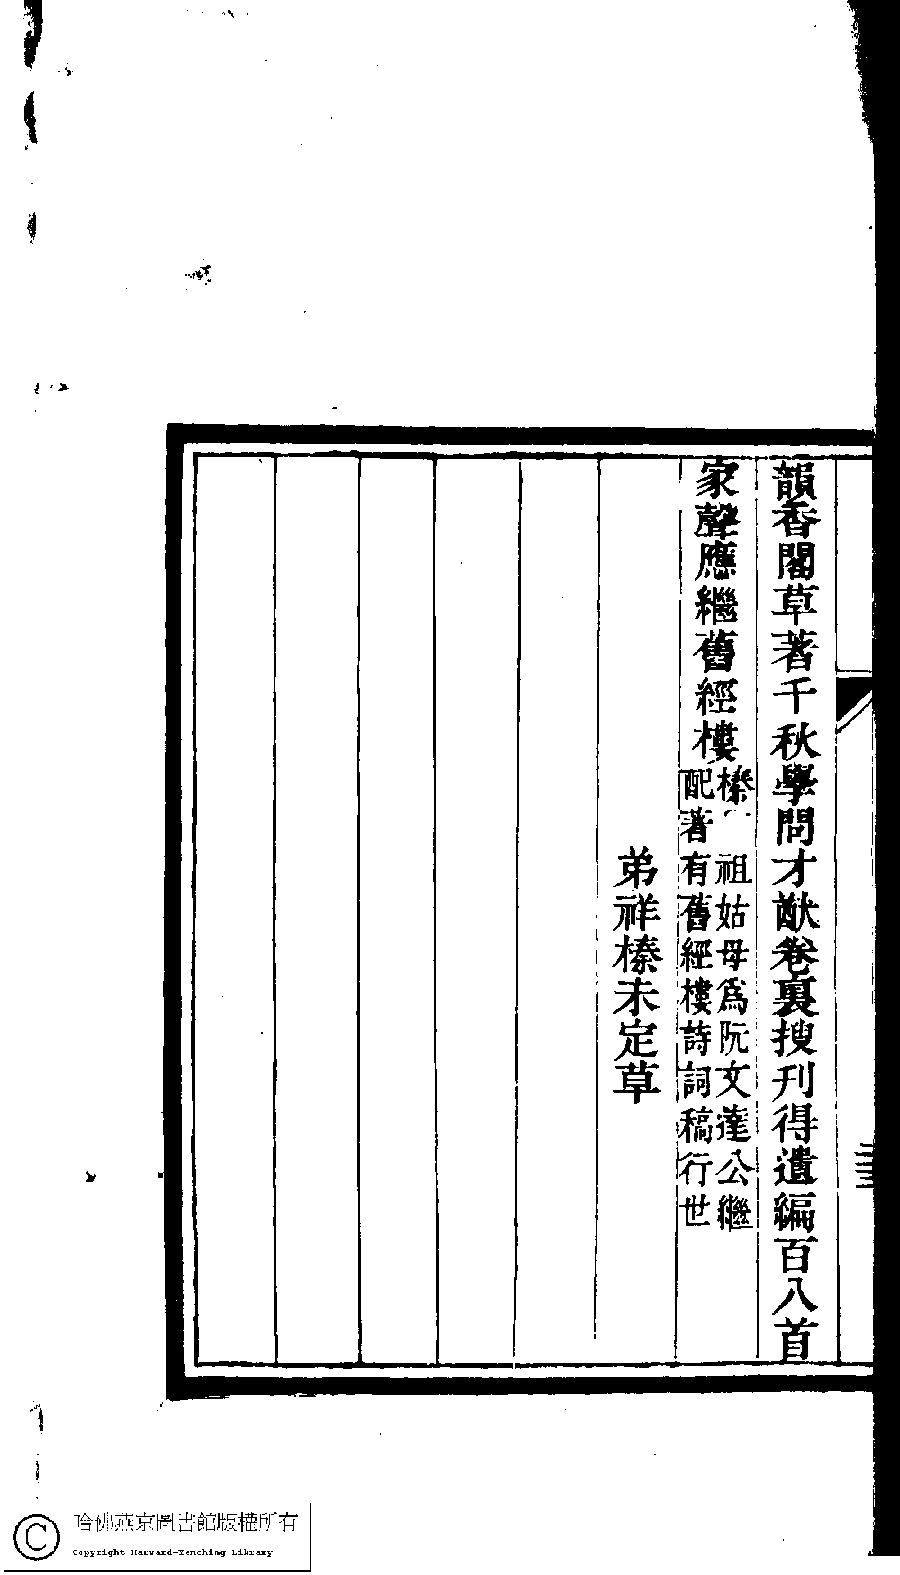 韻香閣草著千秋學問才猷卷裏搜刊得遺編百八首
家聲應繼舊經樓榛 祖姑母爲阮文達公繼
配著有舊經樓詩詞稿行世
弟祥榛未定草
二三
哈佛燕京圖書館版權所有
Copyright Harvard-Yenching Library